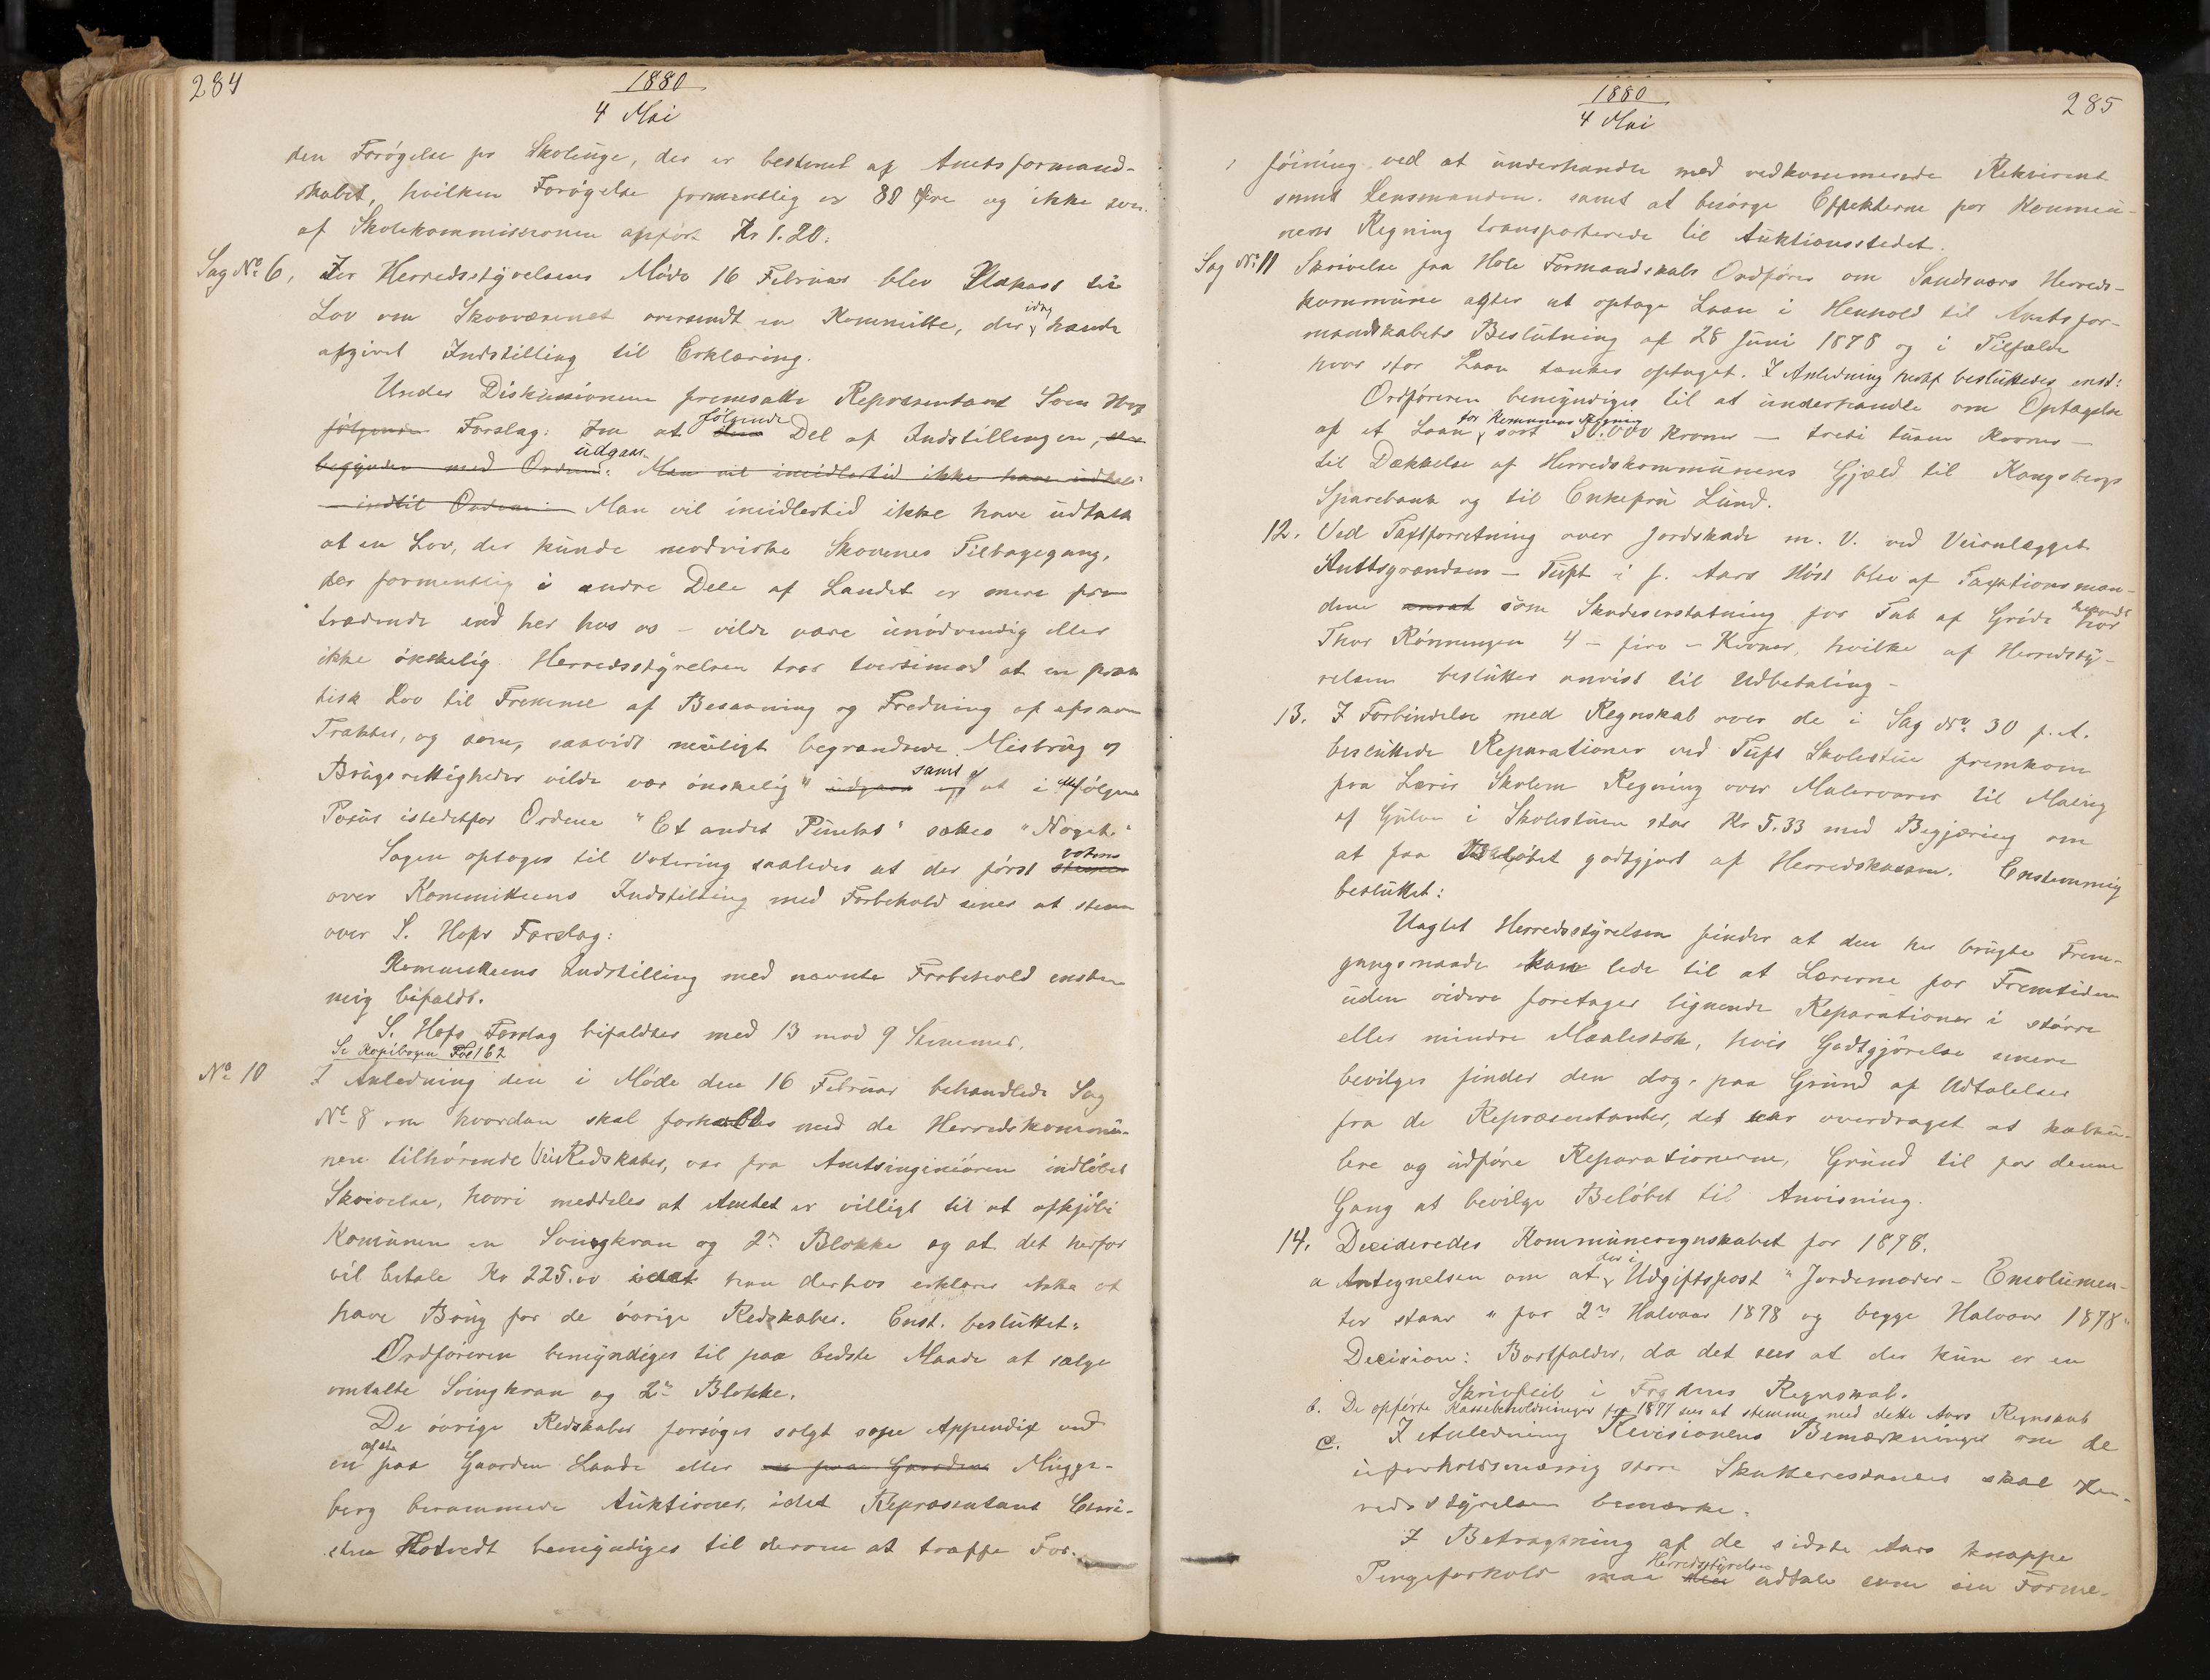 284
1880
4 Mai
den Forøgelse pr Skoleuge, der er bestemt af Amtsformand-
skabet, hvilken Forøgelse formentlig er 80 Øre og ikke som
af Skolekommissionen opført Kr 1.20.
Sag No 6, I Herredsstyrelsens Møde 16 Februar blev Udkast til
Lov om Skovvæsenet oversendt en Kommitte, der idag havde
afgivet Indstilling til Erklæring.
Under Diskussionen fremsatte Repræsentant Sven Hop
følgende Forslag: at følgende Del af Indstillingen,
begynder med Ordene: udgaar Man vil imidlertid ikke have udtalt
indtil Ordene: Man vil imidlertid ikke have udtalt
at en Lov, der kunde modvirke Skovenes Tilbagegang,
der formentlig i andre Dele af Landet er mere frem
trædende end her hos os – vilde være unødvendig eller
ikke ønskelig. Herredsstyrelsen tror tvertimod at en prak
tisk Lov til Fremme af Besaaning og Fredning af afskovn
Trakter, og som, saavidt muligt begrændsede Misbrug af
Brugsrettigheder vilde vær ønskelig" udgaar samt at i følgende
Passus istedetfor Ordene "Et andet Punkt" sættes "Noget"
Sagen optoges til Votering saaledes at der først voteres
over Kommitteens Indstilling med Forbehold senere at stemme
over S. Hops Forslag:
Kommitteens Indstilling med nævnte Forbehold enstem
mig bifaldt.
S. Hops Forslag bifaldtes med 13 mod 9 Stemmer.
Se Kopibogen Fol 162
No 10 I Anledning den i Møde den 16 Februar behandlede Sag
No 8 om hvordan skal forholdes med de Herredskommu-
nen tilhørende Vei Redskaber, var fra Amtsingeniøren indløbet
Skrivelse, hvori meddeles at Amtet er villigt til at afkjøbe
Komunen en Svingkran og 2de Blokke og at det herfor
vil betale Kr 225.00 idet han derhos erklærer ikke at
have Brug for de øvrige Redskaber. Enst. besluttet:
Ordføreren bemyndiges til paa bedste Maade at sælge
omtalte Svingkran og 2de Blokke.
De øvrige Redskaber forsøges solgt som Appendix ved
en paa Gaarden Laade eller en paa Gaarden Mugge-
berg berammede Auktioner, idet Repræsentant Chri-
sten Hotvedt bemyndiges til derom at træffe For-
285
1880
4 Mai
føining ved at underhandle med vedkommende Rekvirent
samt Lensmanden. samt at besørge Effekterne for Kommu-
nens Regning transporterede til Auktionsstedet.
Sag No 11 Skrivelse fra Hole Formandskabs Ordfører om Sandsværs Herreds-
kommune agter at optage Laan i Henhold til Amtsfor-
mandskabets Beslutning af 28 Juni 1878 og i Tilfælde
hvor stor Laan tænkes optaget. I Anledning heraf besluttedes enst:
Ordføreren bemyndiges til at underhandle om Optagelse
af et Laan for Kommunens Regning stort 30.000 Kroner – treti tusen Kroner –
til Dækkelse af Herredskommunens Gjæld til Kongsbergs
Sparebank og til Enkefru Lund.
12. Ved Taxtforretning over Jordskade m. V. ved Veianlægget
Amtsgrændsen – Tuft i f. Aars Høst blev af Taxationsmæn-
dene ansat som Skadeserstatning for Tab af Grøde hos
Thor Rønningen 4 – fire – Kroner, hvilke af Herredsty-
relsen besluttes anvist til Udbetaling –
13. I Forbindelse med Regnskab over de i Sag No 30 f. A.
besluttede Reparationer ved Tufts Skolestue fremkom
fra Lærer Skolem Regning over Malervarer til Maling
af Gulve i Skolestuen stor Kr 5.33 med Begjæring om
at faa Beløbet godtgjort af Herredskassen. Enstemmig
besluttet:
Uagtet Herredsstyrelsen finder at den her brugte Frem-
gangsmaade kan lede til at Lærerne for Fremtiden
uden videre foretager lignende Reparationer i større
eller mindre Maalestok, hvis Godtgjørelse senere
bevilges finder den dog, paa Grund af Udtalelser
fra de Repræsentanter, det var overdraget at kalku-
lere og udføre Reparationerne, Grund til for denne
Gang at bevilge Beløbet til Anvisning.
14. Decideredes Kommuneregnskabet for 1878.
a Antegnelsen om at der i Udgiftspost "Jordemoder-Emolumen-
ter staar "for 2det Halvaar 1878 og begge Halvaar 1878"
Decision: Bortfalder, da det sees at der kun er en
Skrivfeil i Regnskab.
b. De opførte Kassebeholdninger fra 1877 sees at stemme med dette Aars Regnskab
c. I Anledning Revisionens Bemærkninger om de
uforholdsmæssig store Skatterestancer skal Her-
redsstyrelsen bemærke.
I Betragtning af de sidste Aars knappe
Pengeforhold maa Herredsstyrelsen udtale som sin Forme-